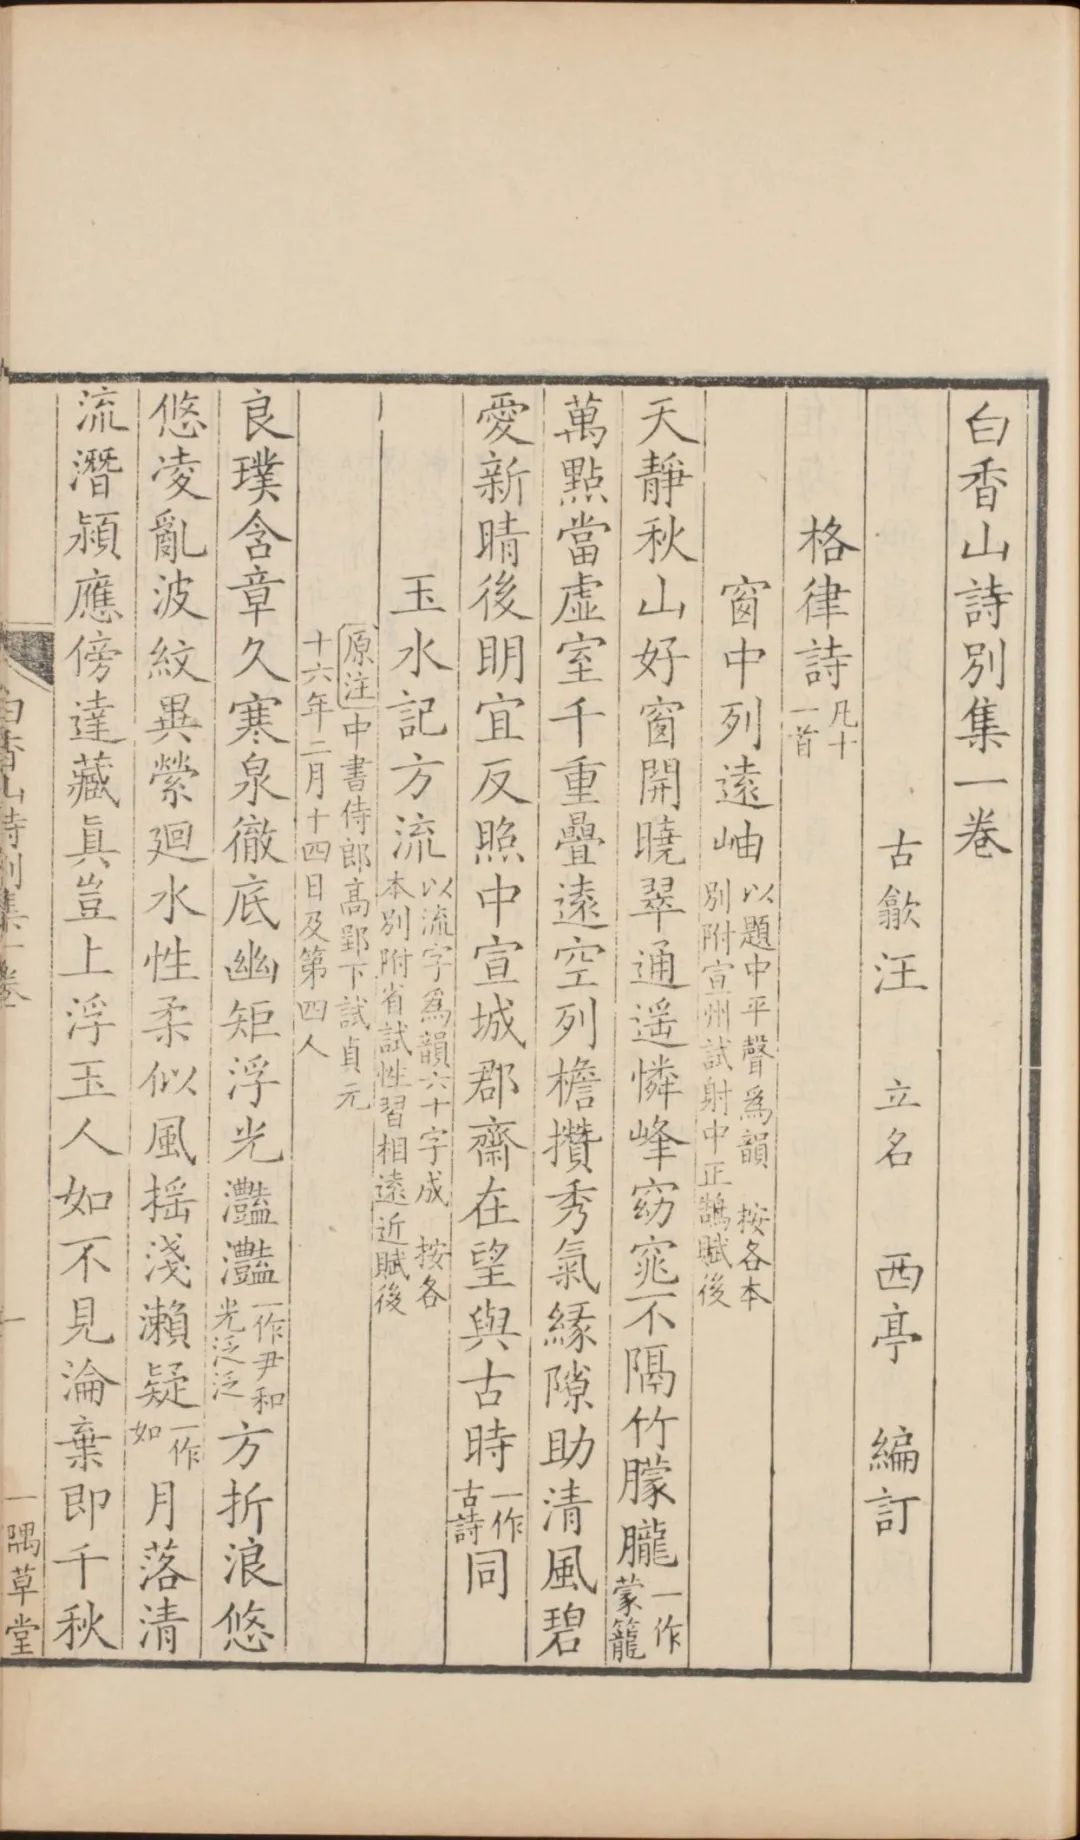 白香山詩別集一卷
古歙汪 立名 西亭 編訂
格律詩凡十一首
窗中列遠岫以題中平聲爲韻 按各本別附宣州試射中正鵠賦後
天靜秋山好窗開曉翠通遥憐峰窈窕不隔竹朦朧一作蒙籠
萬點當虛室千重疊遠空列檐攢秀氣緣隙助清風碧
愛新晴後明宜反照中宣城郡齋在望與古時一作古詩同
玉水記方流以流字爲韻六十字成 按各本別附省試性習相遠近賦後
原注中書侍郎高郢下試貞元十六年二月十四日及第四人
良璞含章久寒泉徹底幽矩浮光灩灩一作尹和光泛泛方折浪悠
悠凌亂波紋異縈廻水性柔似風揺淺瀨疑一作如月落清
流潛潁應傍達藏眞豈上浮玉人如不見淪棄即千秋
白香山詩別集一卷 一 一隅草堂